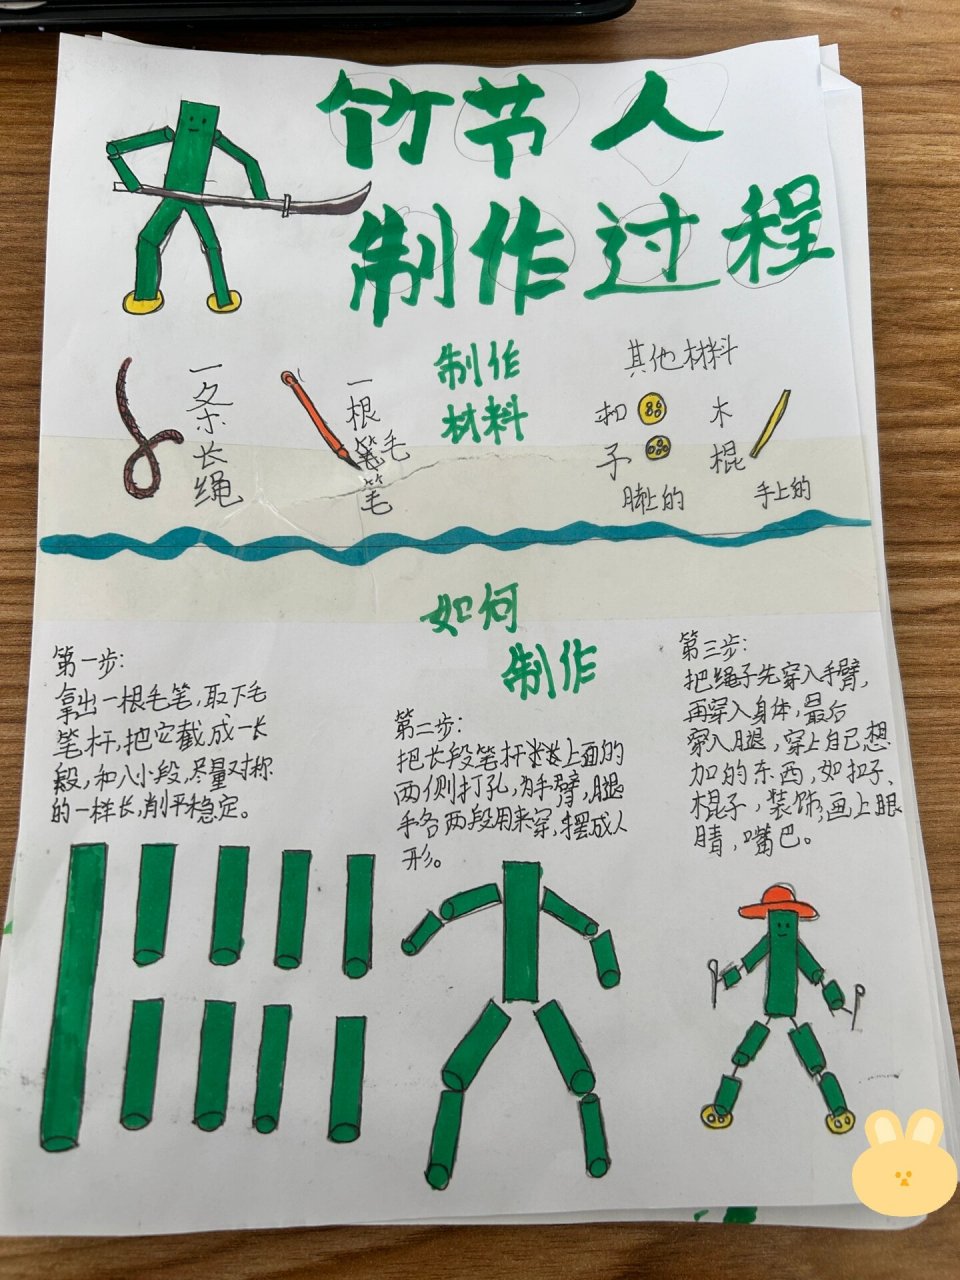 竹节人
制作过程
制作
材料
一条长绳
一根毛笔
其他材料
扣子
脚上的
木棍
手上的
如何
制作
第一步:
拿出一根毛笔,取下毛
笔杆,把它截成一长
段,和八小段,尽量对称
的一样长,削平稳定。
第二步:
把长段笔杆上面的
两侧打孔,为手臂,腿
手各两段用来穿,摆成人
形。
第三步:
把绳子先穿入手臂,
再穿入身体,最后
穿入腿,穿上自己想
加的东西,如扣子、
棍子,装饰,画上眼
睛,嘴巴。